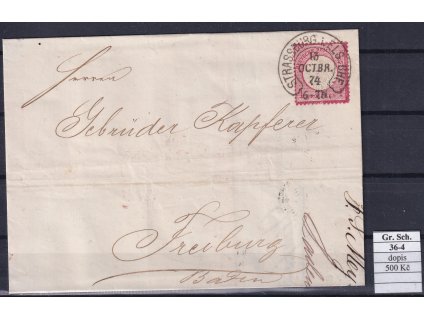 STRASSBURG i. ELS.
13
OCTBR.
74
6-7N.
Herren
Gebrüder Kapferer
Freiburg
Baden
Gr. Sch.
36-4
dopis
500 Kč